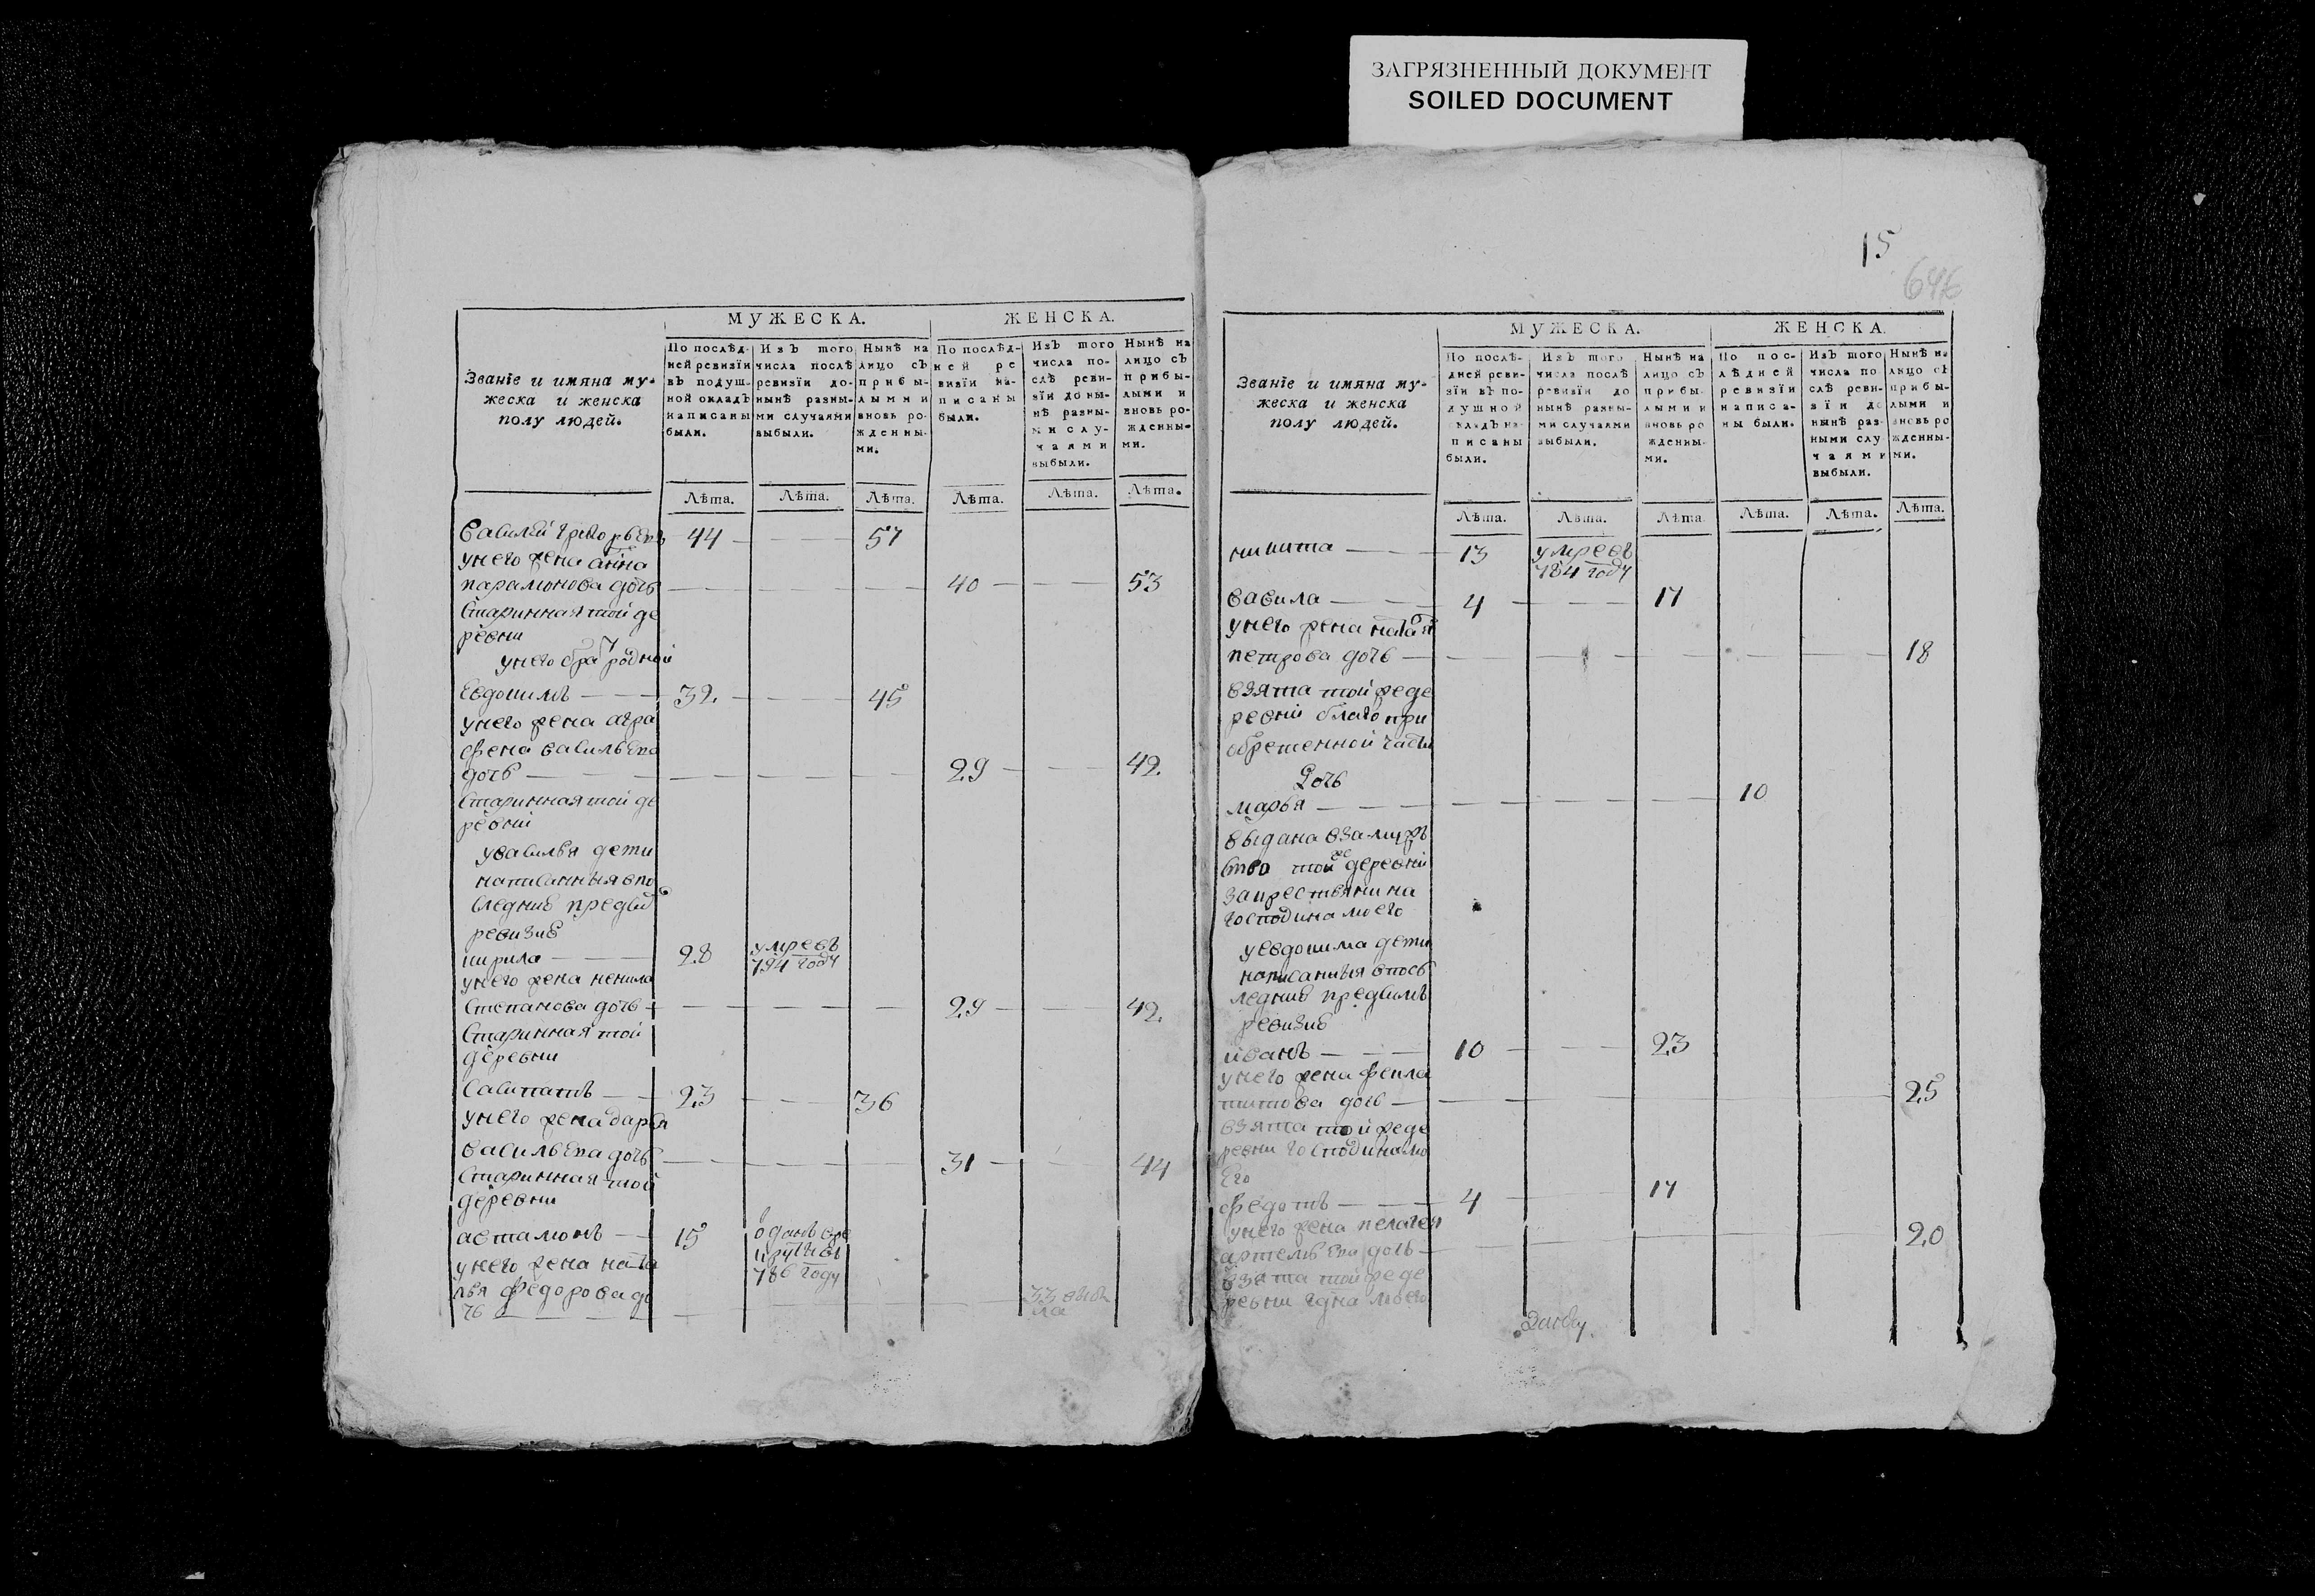 ЗАГРЯЗНЕННЫЙ ДОКУМЕНТ
SOILED DOCUMENT
МУЖЕСКА. ЖЕНСКА.
Званїе и имяна му-
жеска и женска
полу людей.
По послѣд-
ней ревизїи
въ подуш-
ной окладъ
написаны
были.
Изъ того
числа послѣ
ревизїи до-
нынѣ разны-
ми случаями
выбыли.
Нынѣ на
лицо съ
прибы-
лыми и
вновь ро-
жденны-
ми.
По послѣд-
ней ре
визїи на-
писаны
были.
Изъ того
числа по-
слѣ реви-
зїи до ны-
нѣ разны-
ми слу-
чаями
выбыли.
Нынѣ на
лицо съ
прибы-
лыми и
вновь ро-
жденны-
ми.
Лѣта. Лѣта. Лѣта. Лѣта. Лѣта. Лѣта.
василей 44 57
унего жена анна
парамонова дочь 40 53
старинная той де
ревни
унего бра т родной
Евдокимъ 32. 45
унего жена агра
фена васильева
дочь 29 42.
старинная той де
ревни
увасилья дети
написанныя впо
следней пред сей
ревизие
кирила 28 умре въ
794 году
унего жена ненила
степанова дочь 29 42.
старинная той
деревни
савитатъ 23 36
унего жена дарья
васильева дочь 31 44
старинная той
деревни
автамонъ 15 отданъ вре
круты въ
786 году
унего жена ната
лья федорова до
чь 33 выбы
ла
15
646
МУЖЕСКА. ЖЕНСКА.
Званїе и имяна му-
жеска и женска
полу людей.
По послѣ-
дней реви-
зїи въ по-
душной
окладъ на-
писаны
были.
Изъ того
числа послѣ
ревизїи до
нынѣ разны-
ми случаями
выбыли.
Нынѣ на
лицо съ
прибы-
лыми и
вновь ро
жденны-
ми.
По пос-
лѣдней
ревизїи
написа-
ны были.
Изъ того
числа по
слѣ реви-
зїи до
нынѣ раз-
ными слу
чаями
выбыли.
Нынѣ на
лицо съ
прибы-
лыми и
вновь ро
жденны-
ми.
Лѣта. Лѣта. Лѣта. Лѣта. Лѣта. Лѣта.
никита 13 умре въ
784 году
вавила 4 17
унего жена наталя
петрова дочь 18
взята той же де
ревни благо при
обретенной части
Дочь
марья 10
выдана взамуж
ство той же деревни
закрестьянина
господина моего
уевдокима дети
написанныя впос
ледней пред симъ
ревизие
иванъ 10 23
унего жена фекла
титова дочь 25
взята той же де
ревни господина мо
Его
федотъ 4 17
унего жена пелагея
артемьева дочь 20
взята той же де
ревни гдна моего